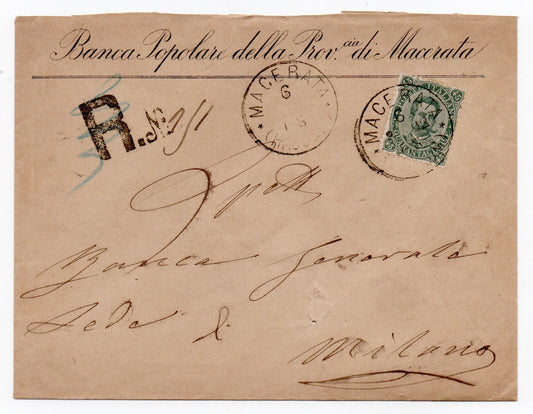 Banca Popolare della Prov.cia di Macerata
MACERATA
6
MACERATA
6
R. N.
Spett
Banca Generale
Sede di
Milano